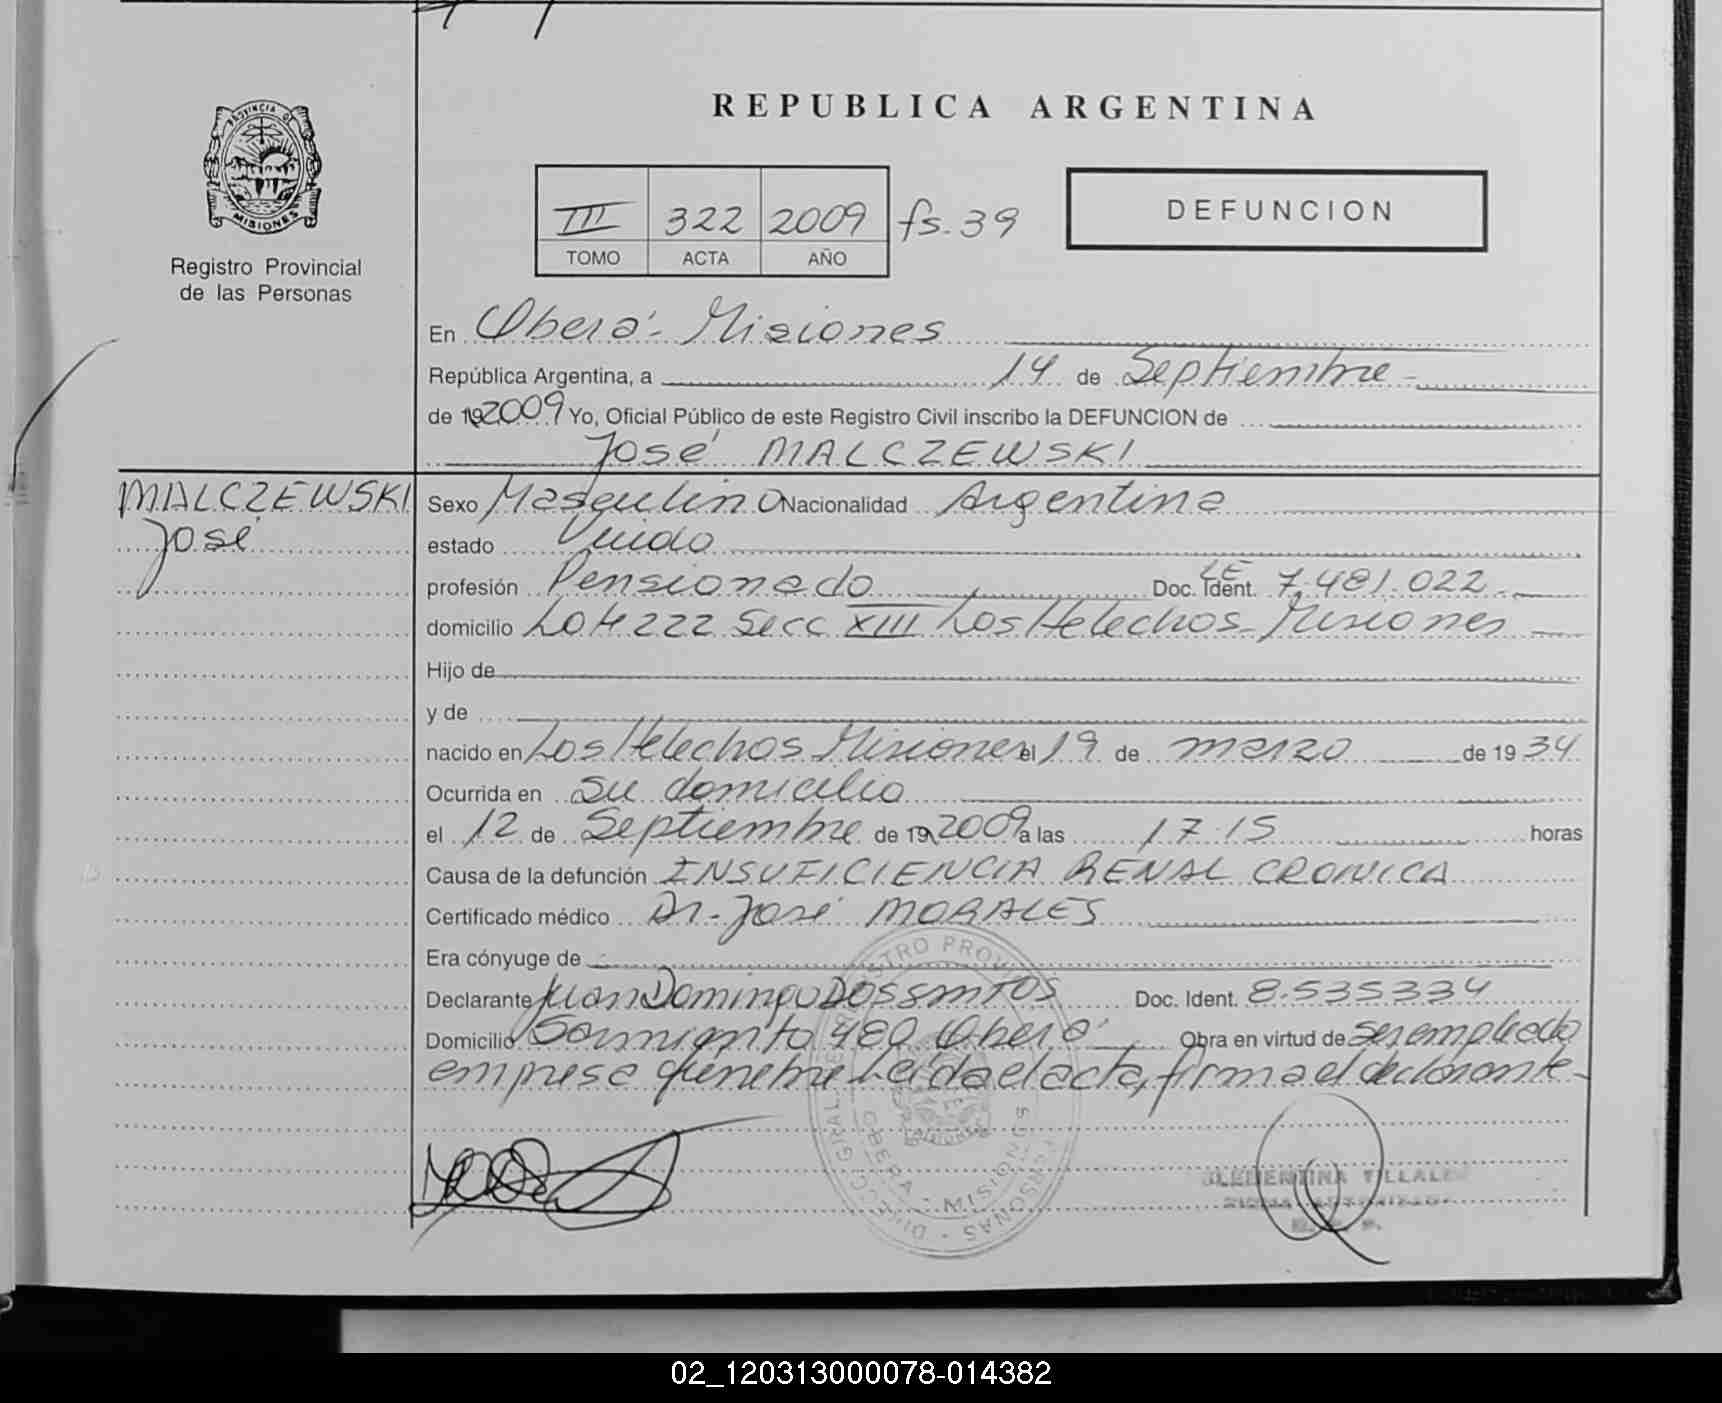 REPUBLICA ARGENTINA
PROVINCIA DE
MISIONES
Registro Provincial
de las Personas
III 322 2009 fs. 39
TOMO ACTA AÑO
DEFUNCION
En Oberá - Misiones
República Argentina, a 14 de Septiembre -
de 192009 Yo, Oficial Público de este Registro Civil inscribo la DEFUNCION de
José MALCZEWSKI
MALCZEWSKI
José
Sexo Masculino Nacionalidad Argentina
estado Viudo
profesión Pensionado Doc. Ident. LE 7.481.022
domicilio Lote 222 Secc XIII Los Helechos - Misiones
Hijo de
y de
nacido en Los Helechos Misiones el 19 de marzo de 1934
Ocurrida en su domicilio
el 12 de Septiembre de 19 2009 a las 17:15 horas
Causa de la defunción INSUFICIENCIA RENAL CRONICA
Certificado médico Dr. José MORALES
Era cónyuge de
Declarante Juan Domingo DOSSANTOS Doc. Ident. 8.535334
Domicilio Sarmiento 480 Oberá Obra en virtud de ser empleado
empresa fúnebre Leída el acta, firma el declarante -
OBERA - MISIONES
CLEMENTINA VILLALBA
02_120313000078-014382